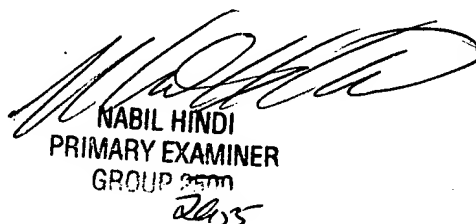 NABIL HINDI
PRIMARY EXAMINER
GROUP 2500
2905